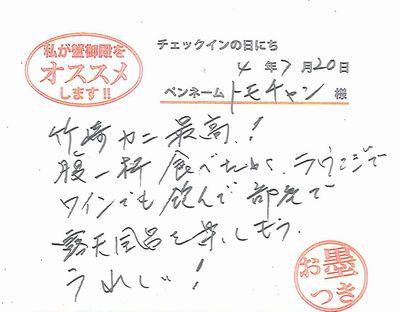 私が蟹御殿を
オススメ
します!!
チェックインの日にち
4年7月20日
ペンネーム トモチャン 様
竹崎カニ最高!
腹一杯食べたあと、ラウンジで
ワインでも飲んで部屋で
露天風呂を楽しもう。
うれしい!
お墨つき